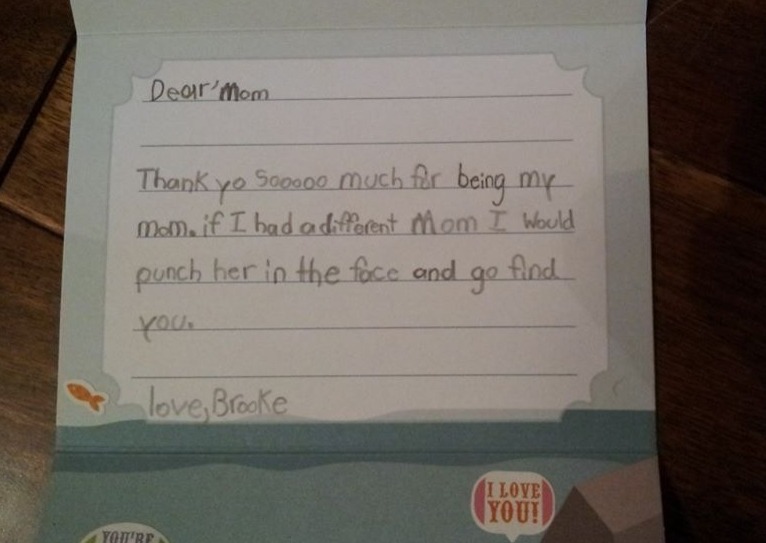 Dear'Mom
Thank yo Sooooo much for being my
mom. if I had a different Mom I Would
punch her in the face and go find
you.
love, Brooke
I LOVE
YOU!
YOU'RE